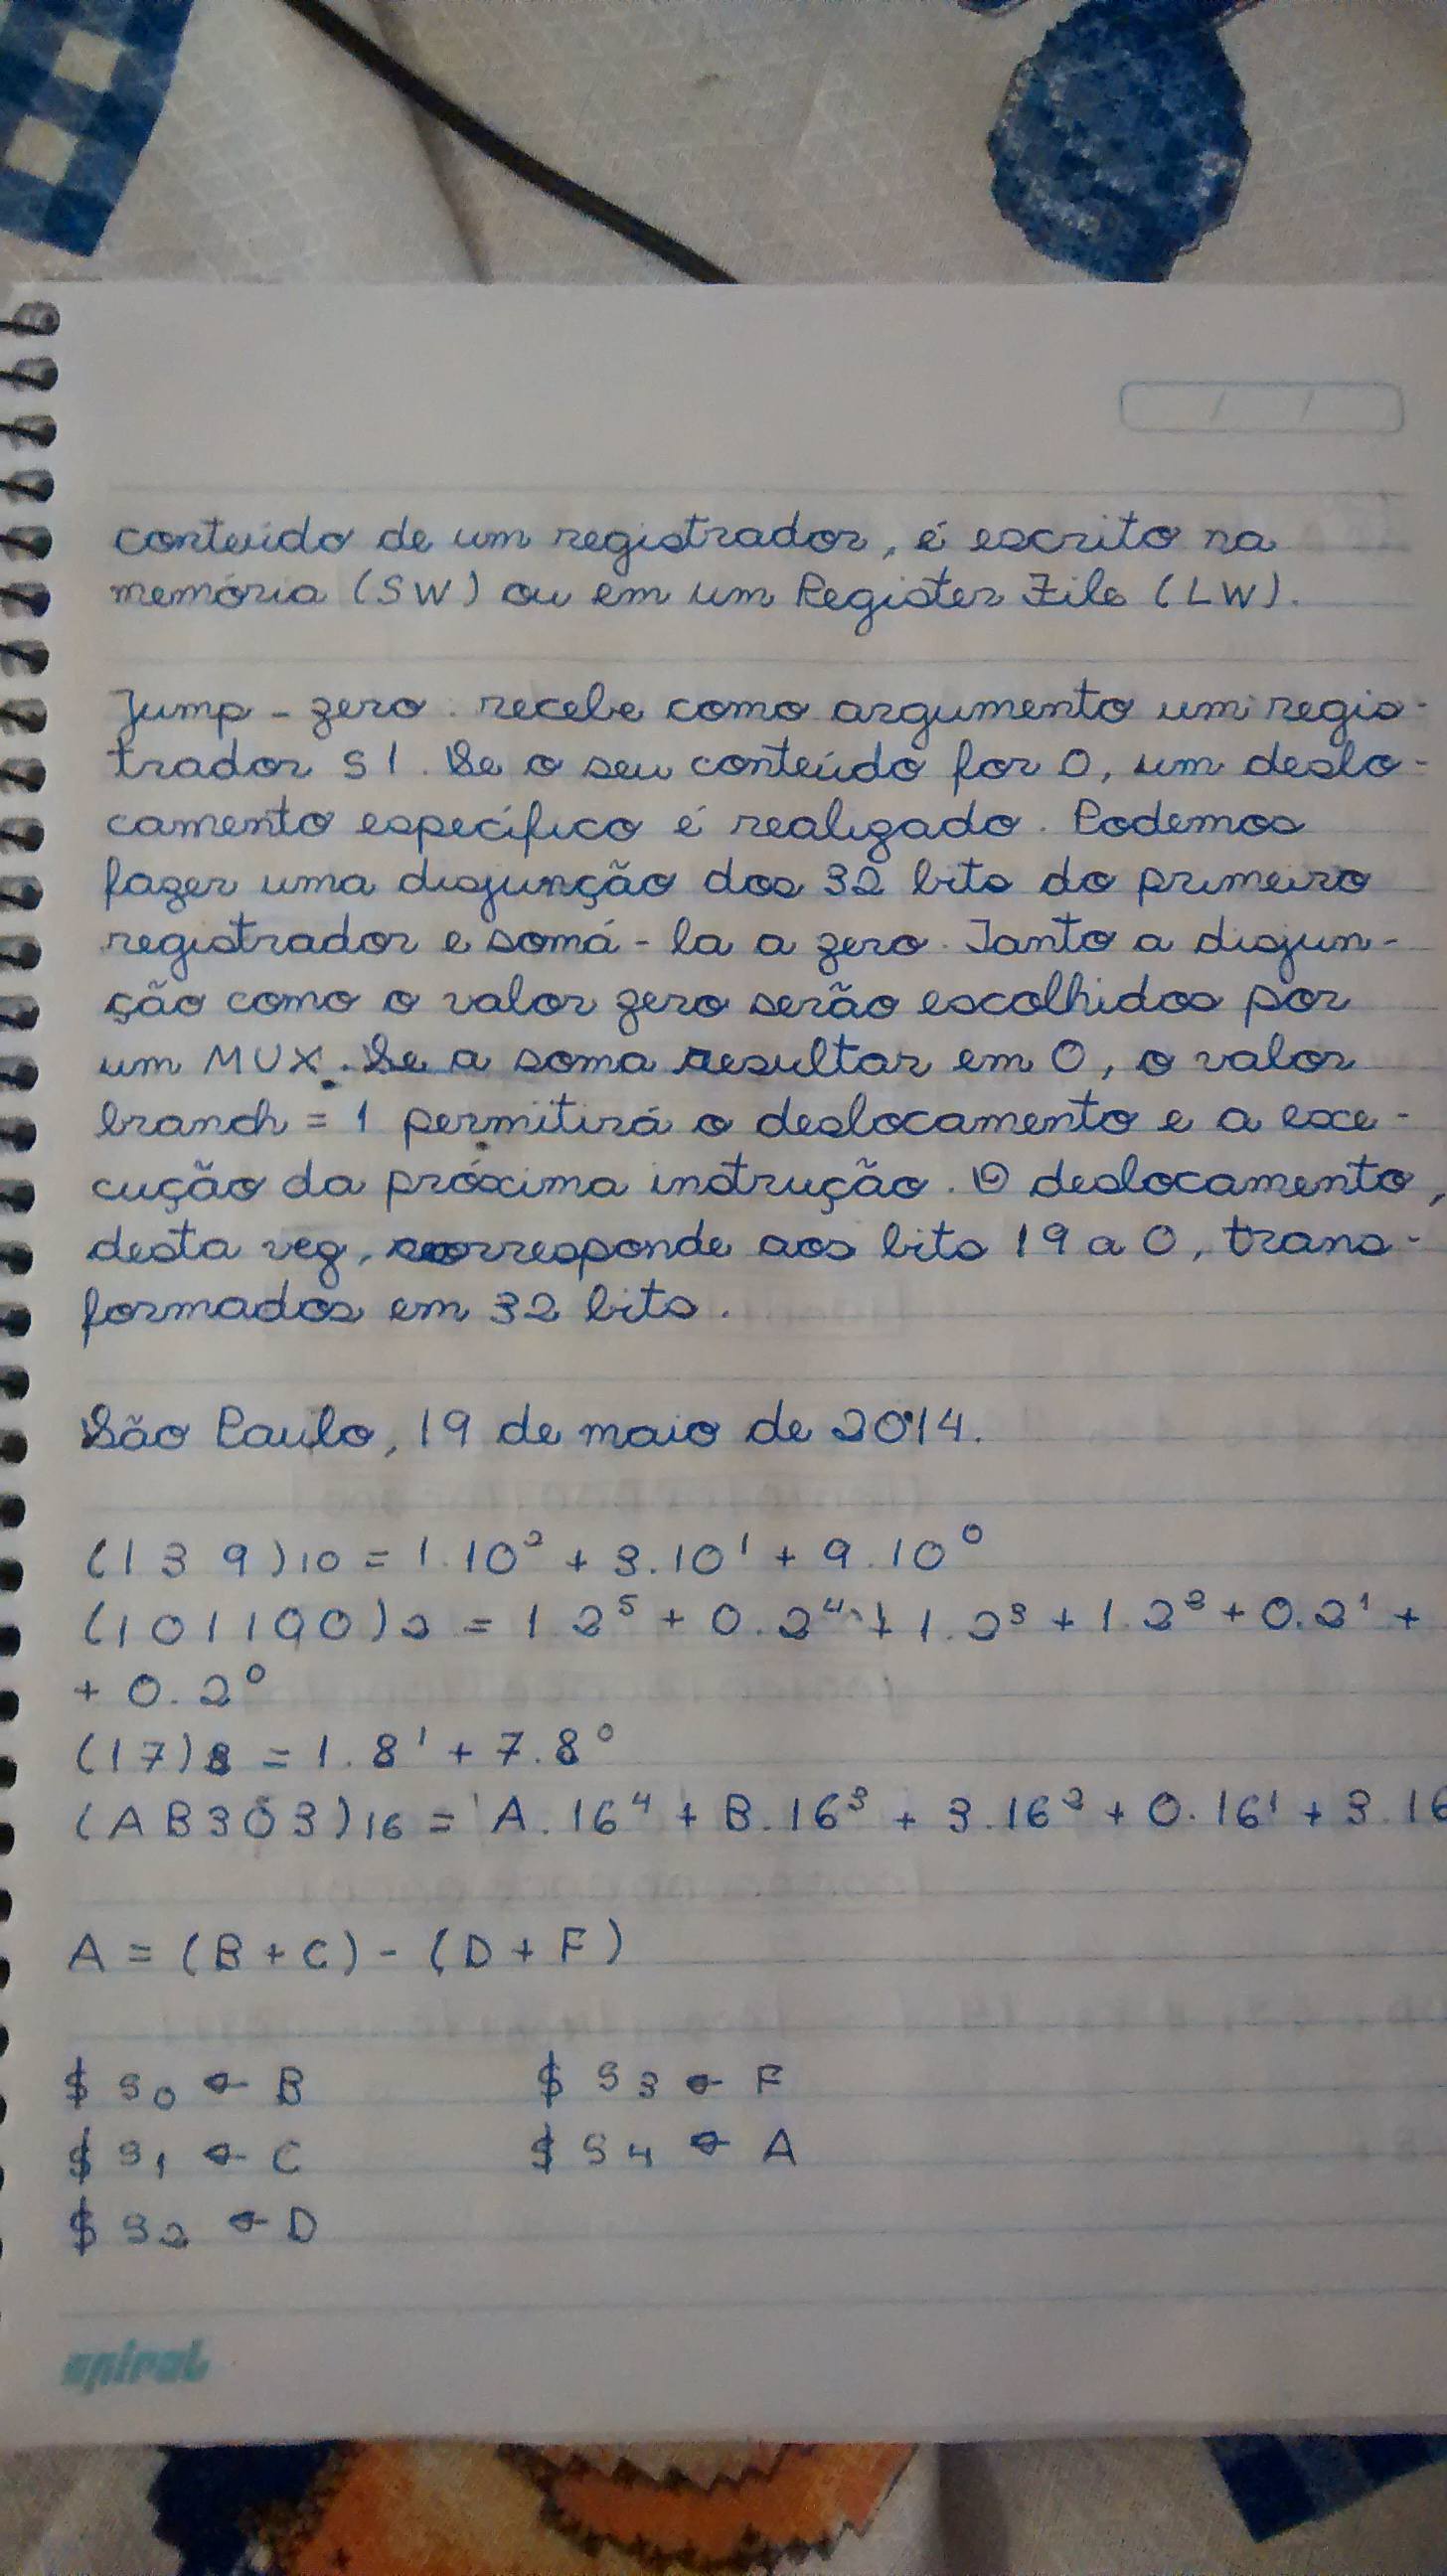 conteúdo de um registrador, é escrito na
memória (SW) ou em um Register File (LW).
Jump-zero: recebe como argumento um regis-
trador S1. Se o seu conteúdo for 0, um deslo-
camento específico é realizado. Podemos
fazer uma disjunção dos 32 bits do primeiro
registrador e somá-la a zero. Tanto a disjun-
ção como o valor zero serão escolhidos por
um MUX. Se a soma resultar em 0, o valor
branch = 1 permitirá o deslocamento e a exe-
cução da próxima instrução. O deslocamento,
desta vez, corresponde aos bits 19 a 0, trans-
formados em 32 bits.
São Paulo, 19 de maio de 2014.
(139)10 = 1.10² + 3.10¹ + 9.10⁰
(101100)2 = 1.2⁵ + 0.2⁴ + 1.2³ + 1.2² + 0.2¹ +
+ 0.2⁰
(17)8 = 1.8¹ + 7.8⁰
(AB303)16 = A.16⁴ + B.16³ + 3.16² + 0.16¹ + 3.16
A = (B + C) - (D + F)
$ S0 ← B $ S3 ← F
$ S1 ← C $ S4 ← A
$ S2 ← D
spiral